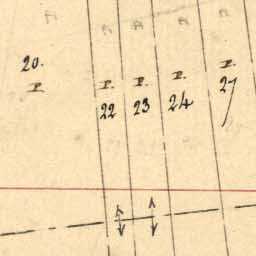 20.
P.
P.
22
P.
23
P.
24
P.
27